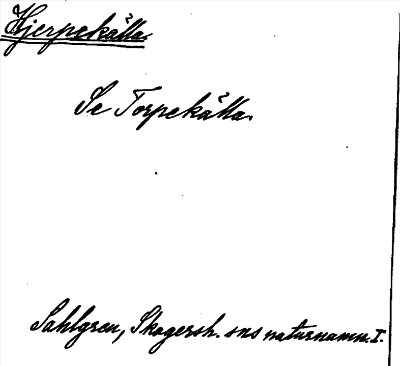 Hjerpekälla.
Se Torpekälla.
Sahlgren, Skagersh. sns naturnamn. I.